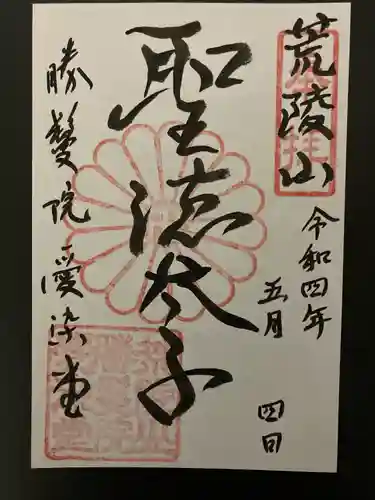 荒陵山
令和四年
五月 四日
聖徳太子
勝鬘院愛染堂